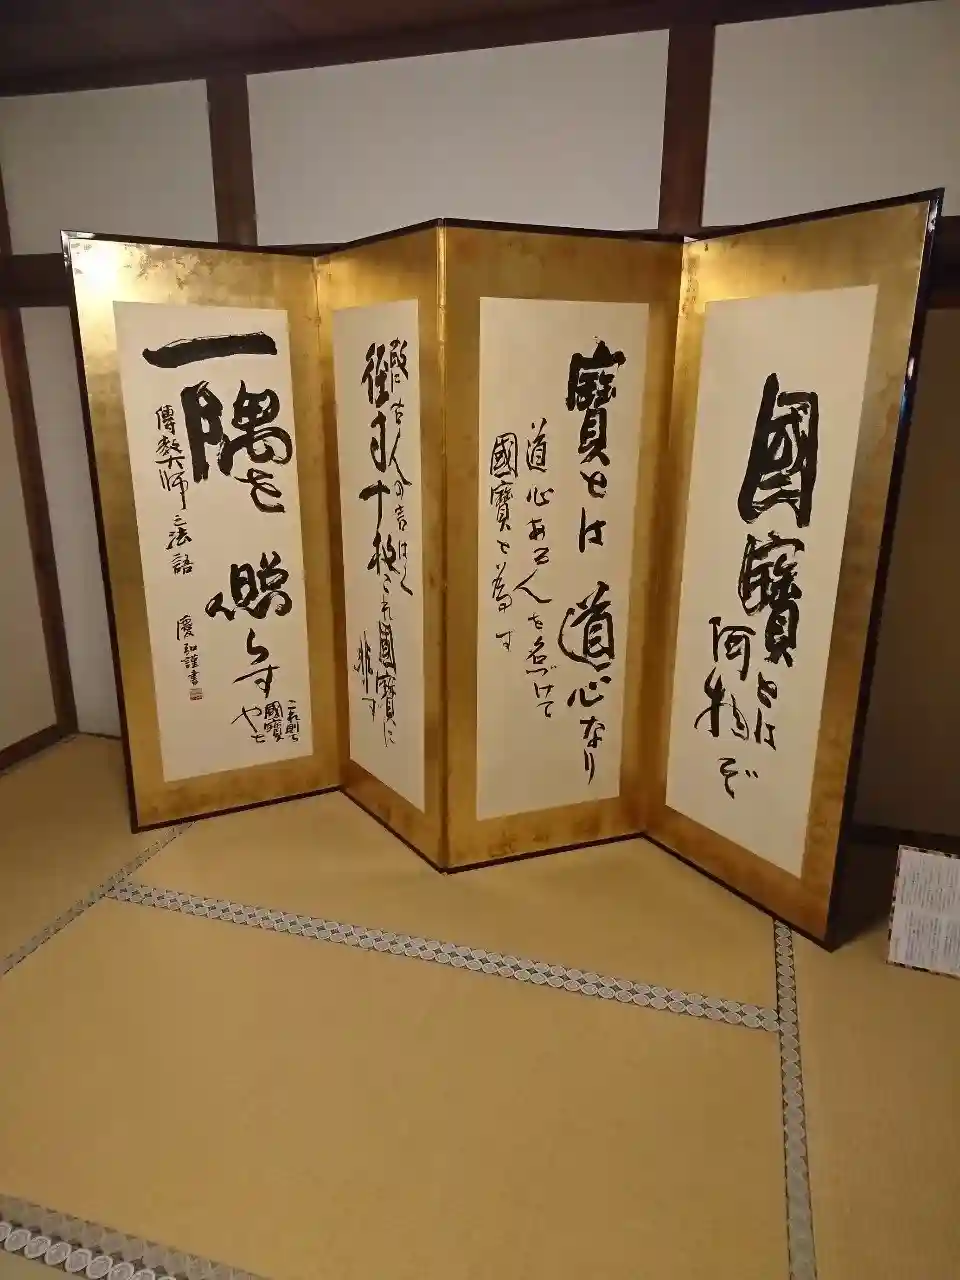 國寶とは
何物ぞ
寶とは道心なり
道心ある人を名づけて
國寶と為す
故に古人の言はく
径寸十枚これ國寶に
非ず
一隅を
照らす
これ則ち
國寶
なりと
傳教大師之法語
慶弘謹書